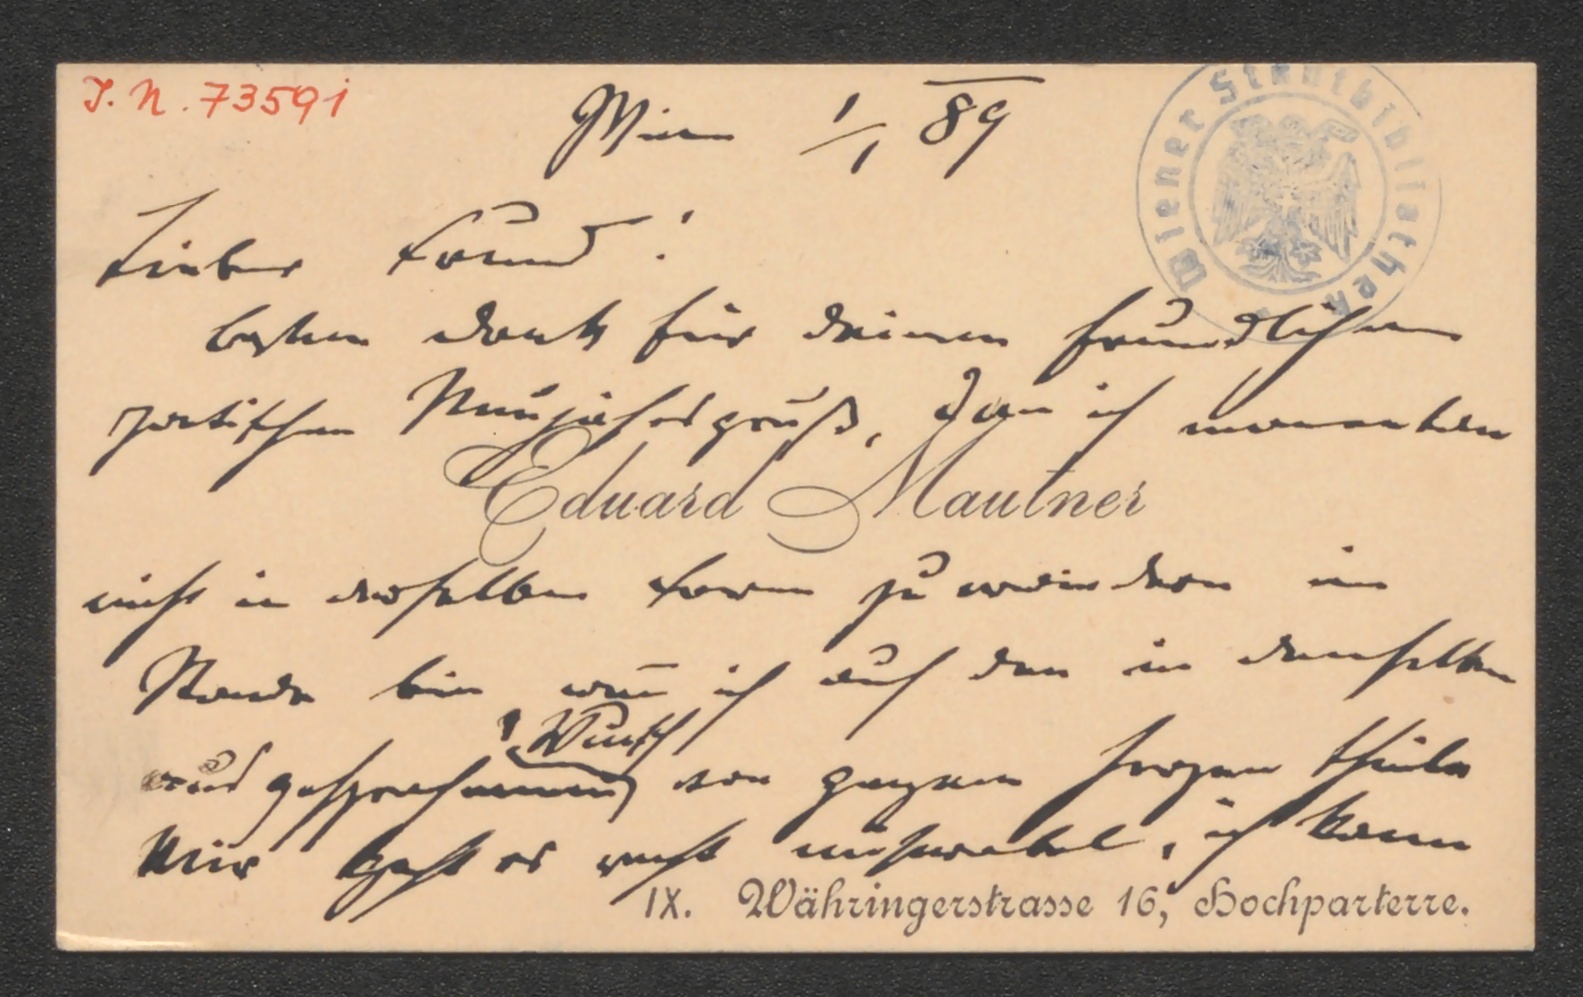 I. N. 73591
Wien 1/1 89
Wiener Stadtbibliothek
Lieber Freund!
besten Dank für deinen freundlichen
poetischen Neujahrsgruß, den ich momentan
Eduard Mautner
nicht in derselben Form zu erwiedern im
Stande bin wenn ich auch den in demselben
ausgesprochenen Wunsch von ganzem Herzen theile
Mir geht es recht miserabel, ich kann
IX. Währingerstrasse 16, Hochparterre.